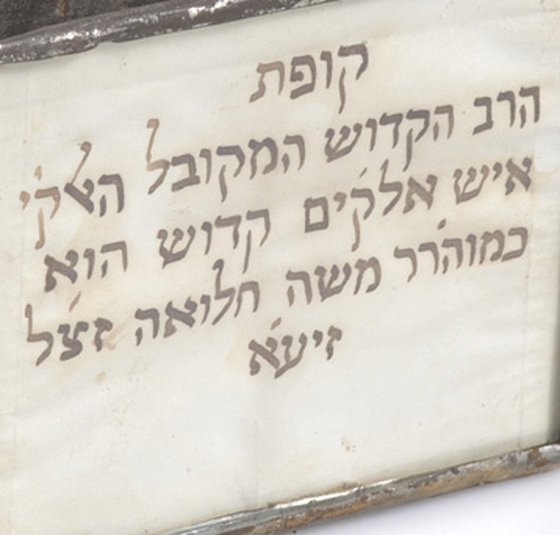 קופת
הרב הקדוש המקובל האלקי
איש אלקים קדוש הוא
כמוהרר משה חלואה זצ'ל
זיע'א